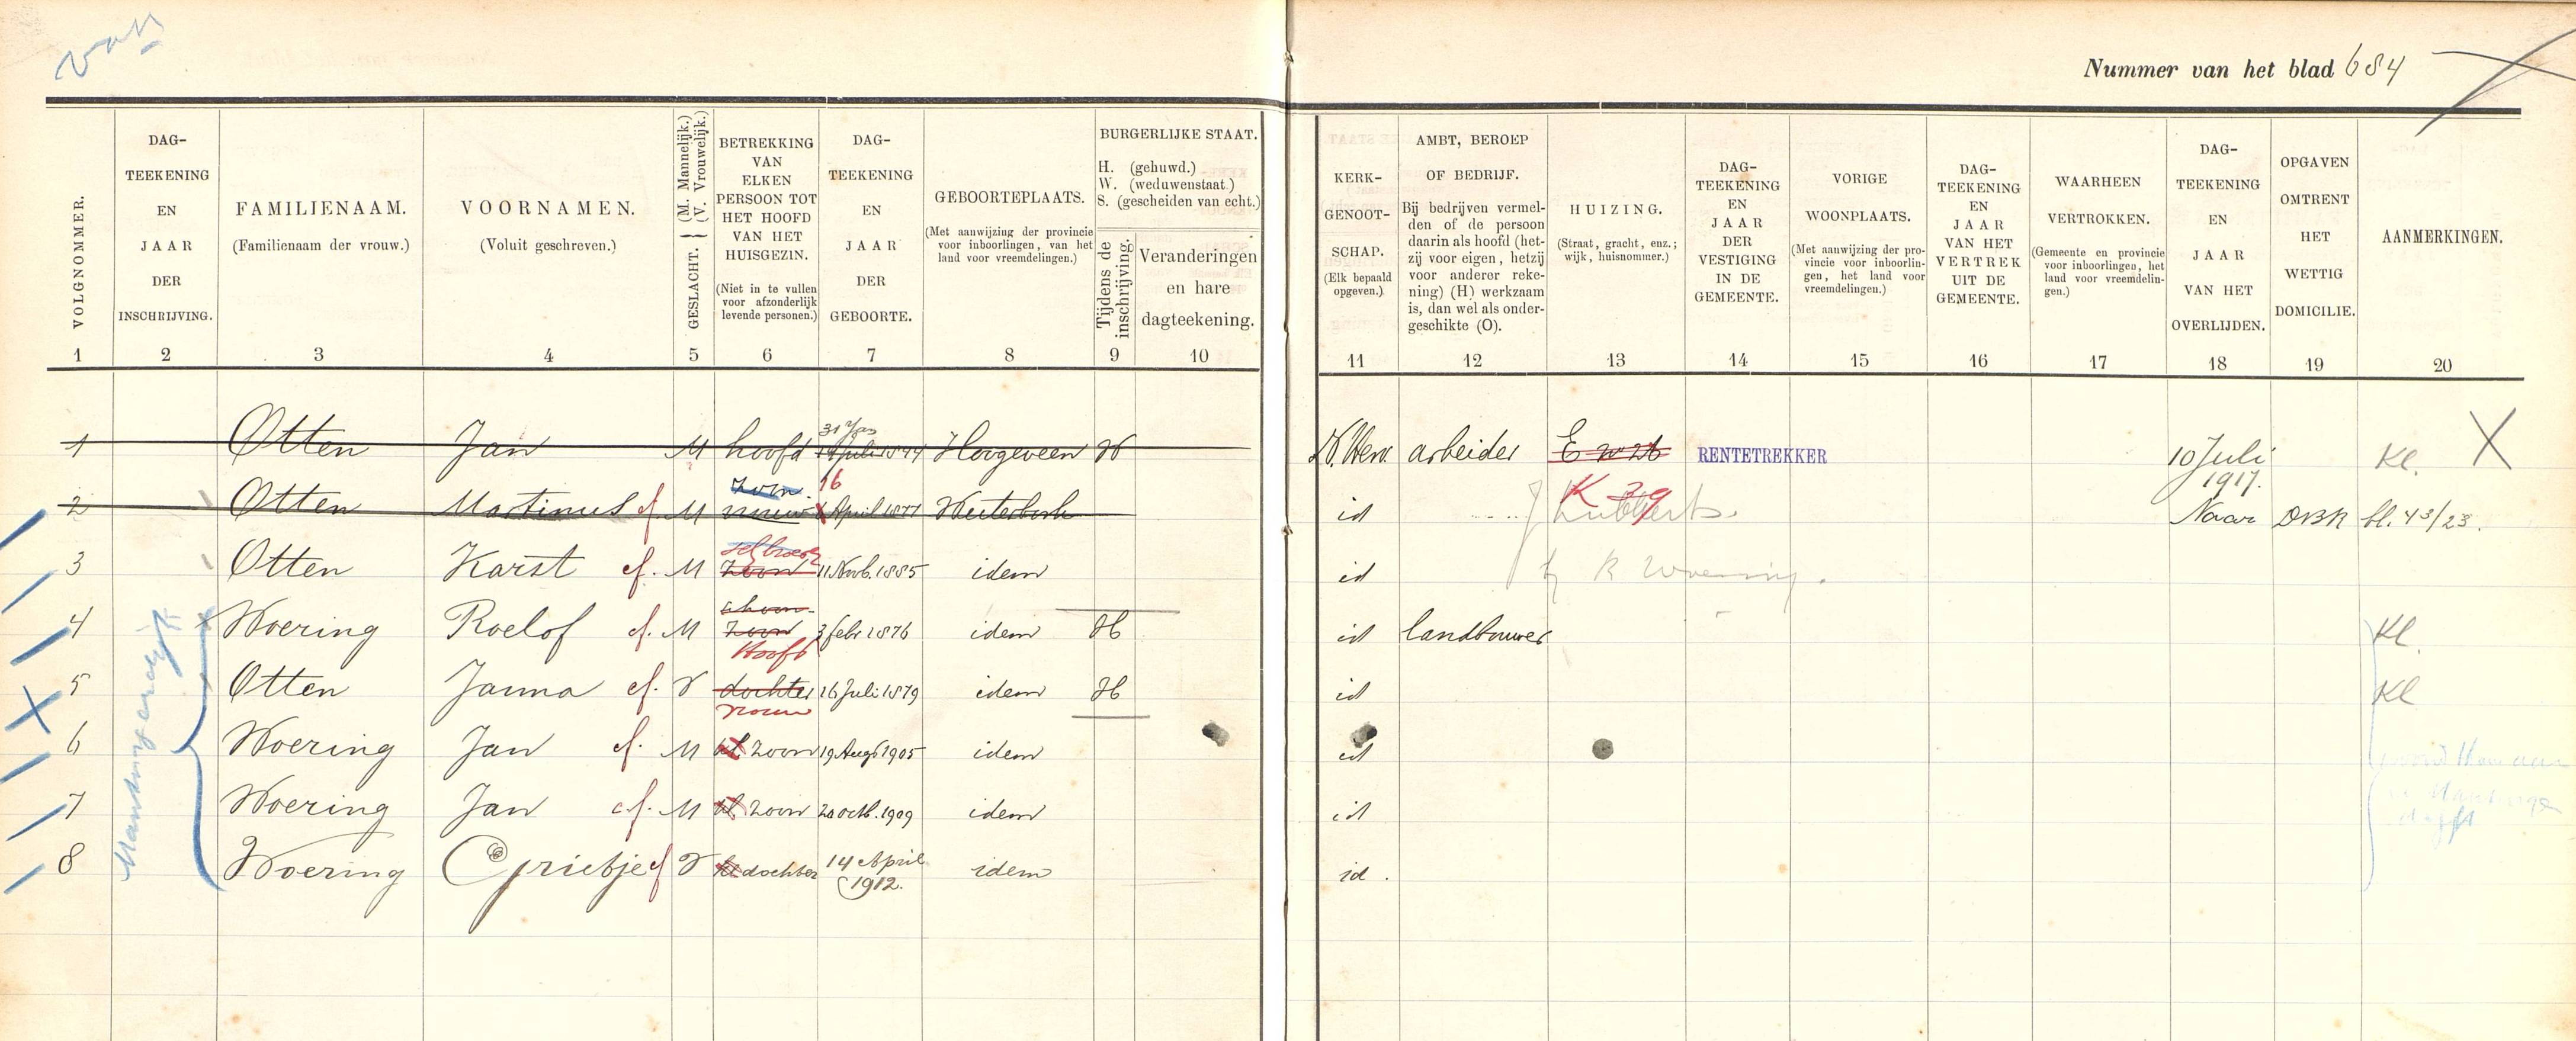 Nummer van het blad 684
VOLGNOMMER.
DAG-
TEEKENING
EN
JAAR
DER
INSCHRIJVING.
FAMILIENAAM.
(Familienaam der vrouw.)
VOORNAMEN.
(Voluit geschreven.)
GESLACHT. { (M. Mannelijk.) (V. Vrouwelijk.)
BETREKKING
VAN
ELKEN
PERSOON TOT
HET HOOFD
VAN HET
HUISGEZIN.
(Niet in te vullen
voor afzonderlijk
levende personen.)
DAG-
TEEKENING
EN
JAAR
DER
GEBOORTE.
GEBOORTEPLAATS.
(Met aanwijzing der provincie
voor inboorlingen, van het
land voor vreemdelingen.)
BURGERLIJKE STAAT.
H. (gehuwd.)
W. (weduwenstaat.)
S. (gescheiden van echt.)
Tijdens de
inschrijving.
Veranderingen
en hare
dagteekening.
KERK-
GENOOT-
SCHAP.
(Elk bepaald
opgeven.)
AMBT, BEROEP
OF BEDRIJF.
Bij bedrijven vermel-
den of de persoon
daarin als hoofd (het-
zij voor eigen, hetzij
voor anderer reke-
ning) (H) werkzaam
is, dan wel als onder-
geschikte (O).
HUIZING.
(Straat, gracht, enz.;
wijk, huisnommer.)
DAG-
TEEKENING
EN
JAAR
DER
VESTIGING
IN DE
GEMEENTE.
VORIGE
WOONPLAATS.
(Met aanwijzing der pro-
vincie voor inboorlin-
gen, het land voor
vreemdelingen.)
DAG-
TEEKENING
EN
JAAR
VAN HET
VERTREK
UIT DE
GEMEENTE.
WAARHEEN
VERTROKKEN.
(Gemeente en provincie
voor inboorlingen, het
land voor vreemdelin-
gen.)
DAG-
TEEKENING
EN
JAAR
VAN HET
OVERLIJDEN.
OPGAVEN
OMTRENT
HET
WETTIG
DOMICILIE.
AANMERKINGEN.
1 2 3 4 5 6 7 8 9 10 11 12 13 14 15 16 17 18 19 20
31 Jan
1 Otten Jan M hoofd Juli 1844 Hoogeveen H N. Herv. arbeider E RENTETREKKER 10 Juli 1917. Kl.
zoon. 16 K 39
2 Otten Martinus cf M April 1877 Westerbork id Lubberts. Naar DBR bl. 43/23.
3 Otten Karst cf. M zoon 11 Novb. 1885 idem id R Woering.
schoon-
4 Woering Roelof cf. M zoon 3 febr 1876 idem H id landbouwer Kl.
Hoofd
5 Otten Janna cf. V dochter 16 Juli 1879 idem H id Kl
vrouw
6 Woering Jan cf. M kl. zoon 19 Augs 1905 idem id
7 Woering Jan cf. M kl. zoon 20 octb. 1909 idem id
8 Woering Grietje cf V kl dochter 14 April 1912. idem id.